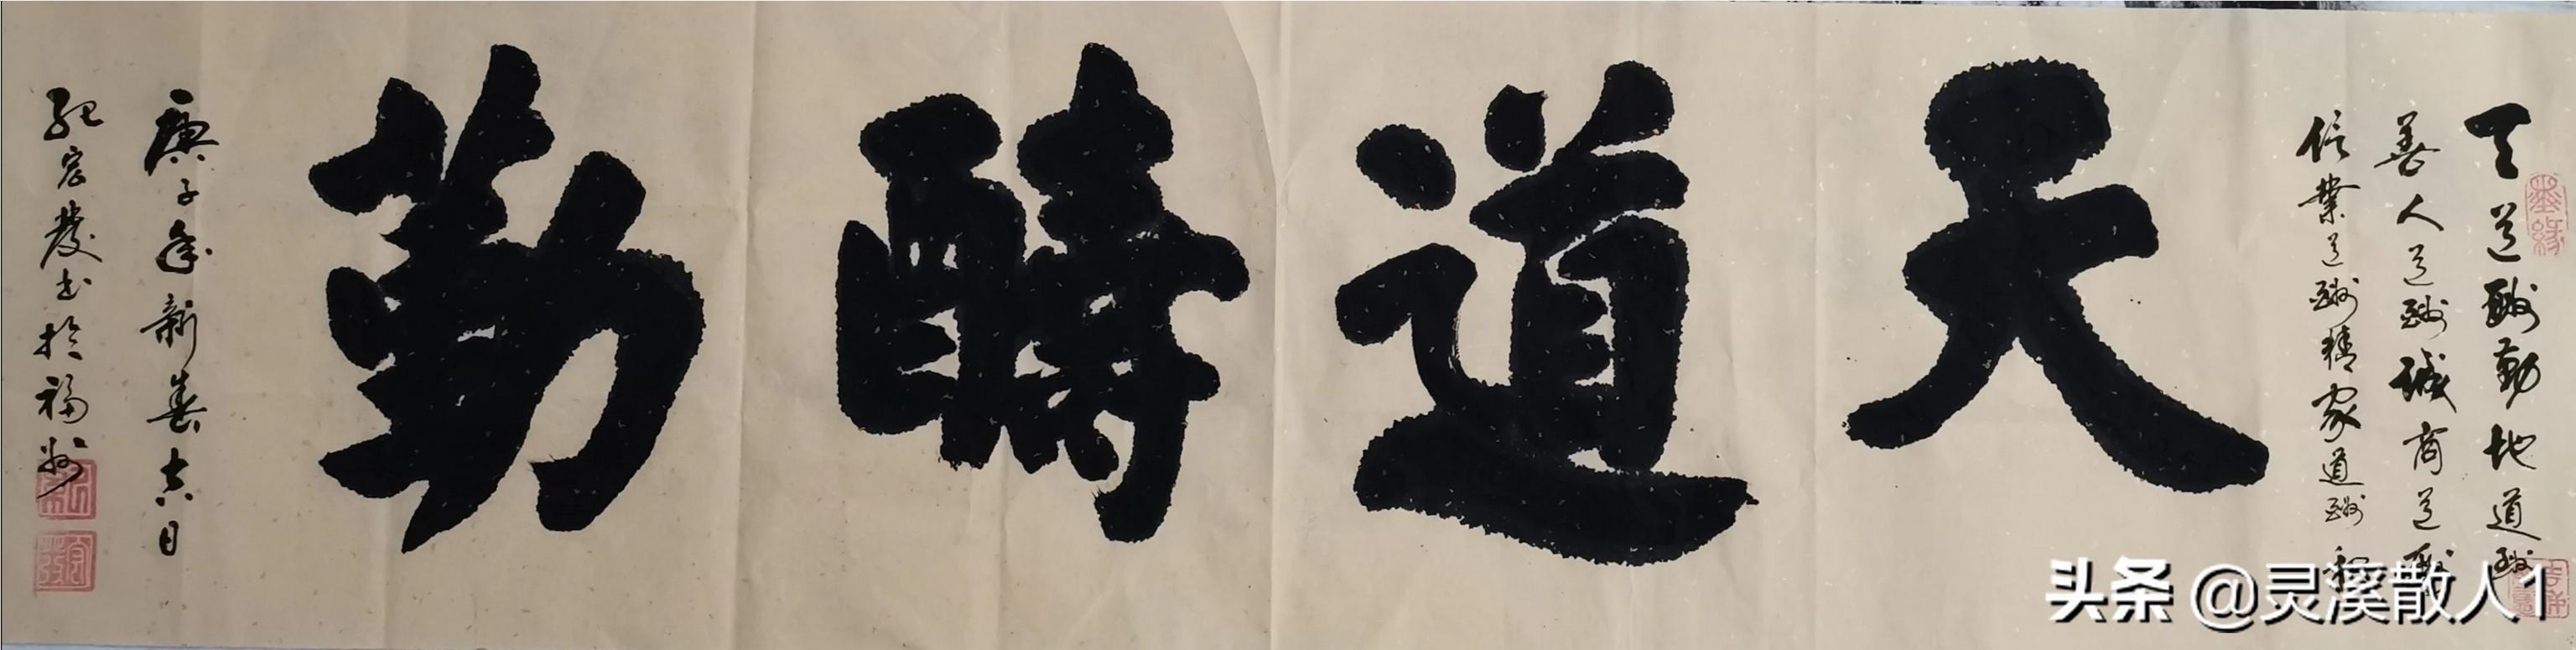 天道酬勤地道酬
善人道酬誠商道酬
信業道酬精家道酬和
天道酬勤
庚子年新春吉日
紀宏發书於福州
墨緣
头条 @灵溪散人1